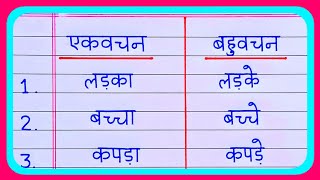 एकवचन बहुवचन
1. लड़का लड़के
2. बच्चा बच्चे
3. कपड़ा कपड़े